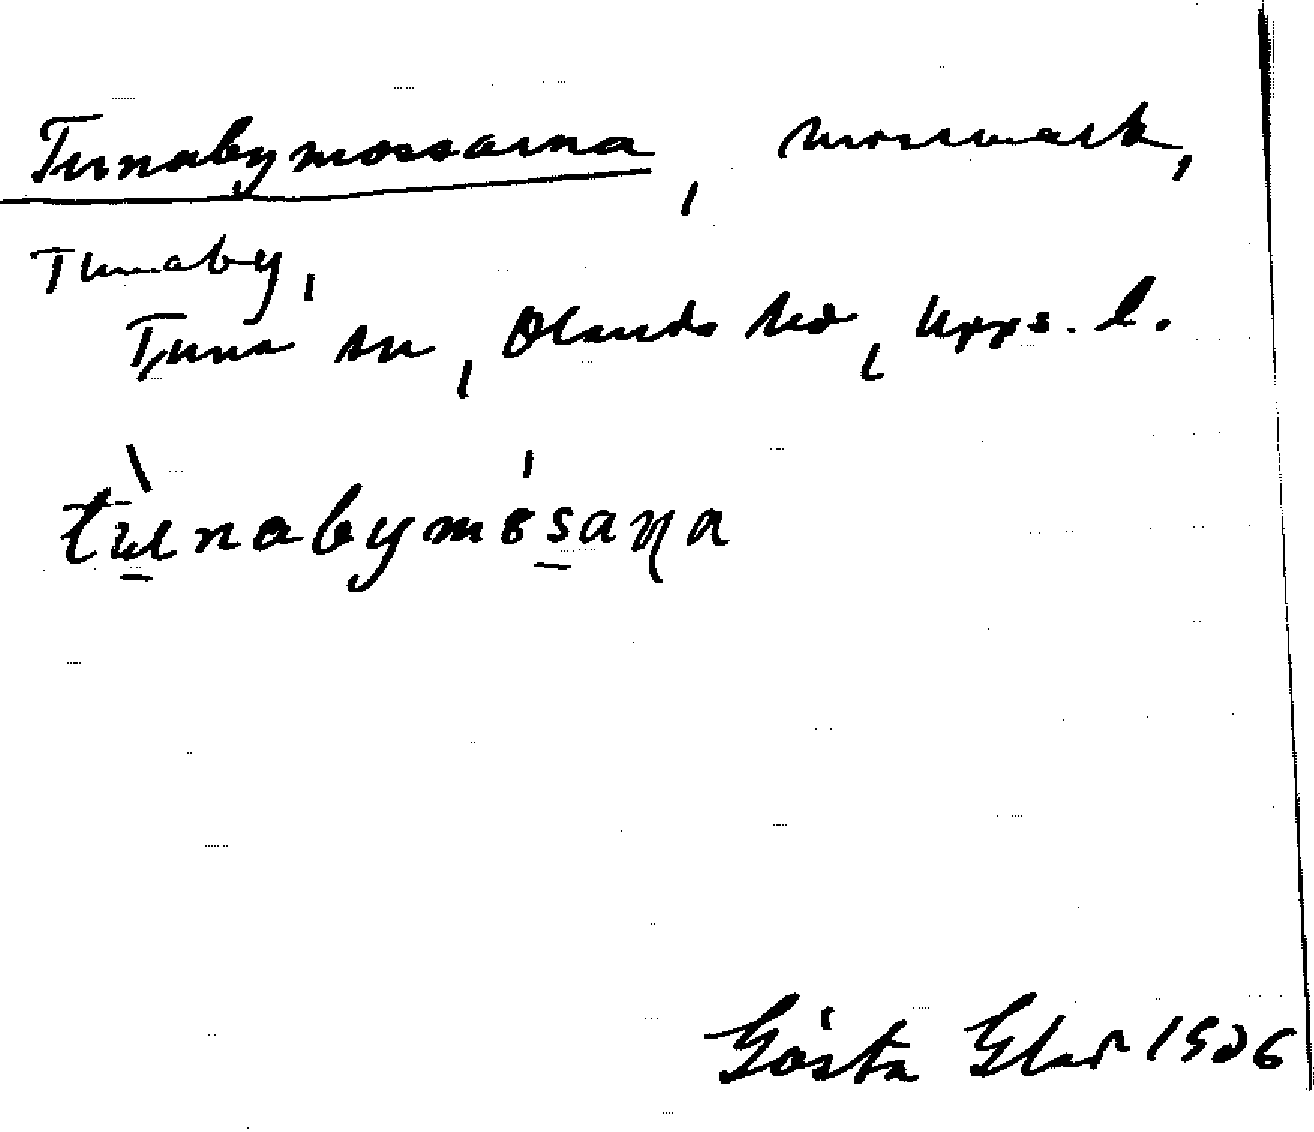 Tunabymossarna, mossmark,
Tunaby,
Tuna sn, Olands hd, Upps. l.
tùnabymósaɳa
Gösta 1926